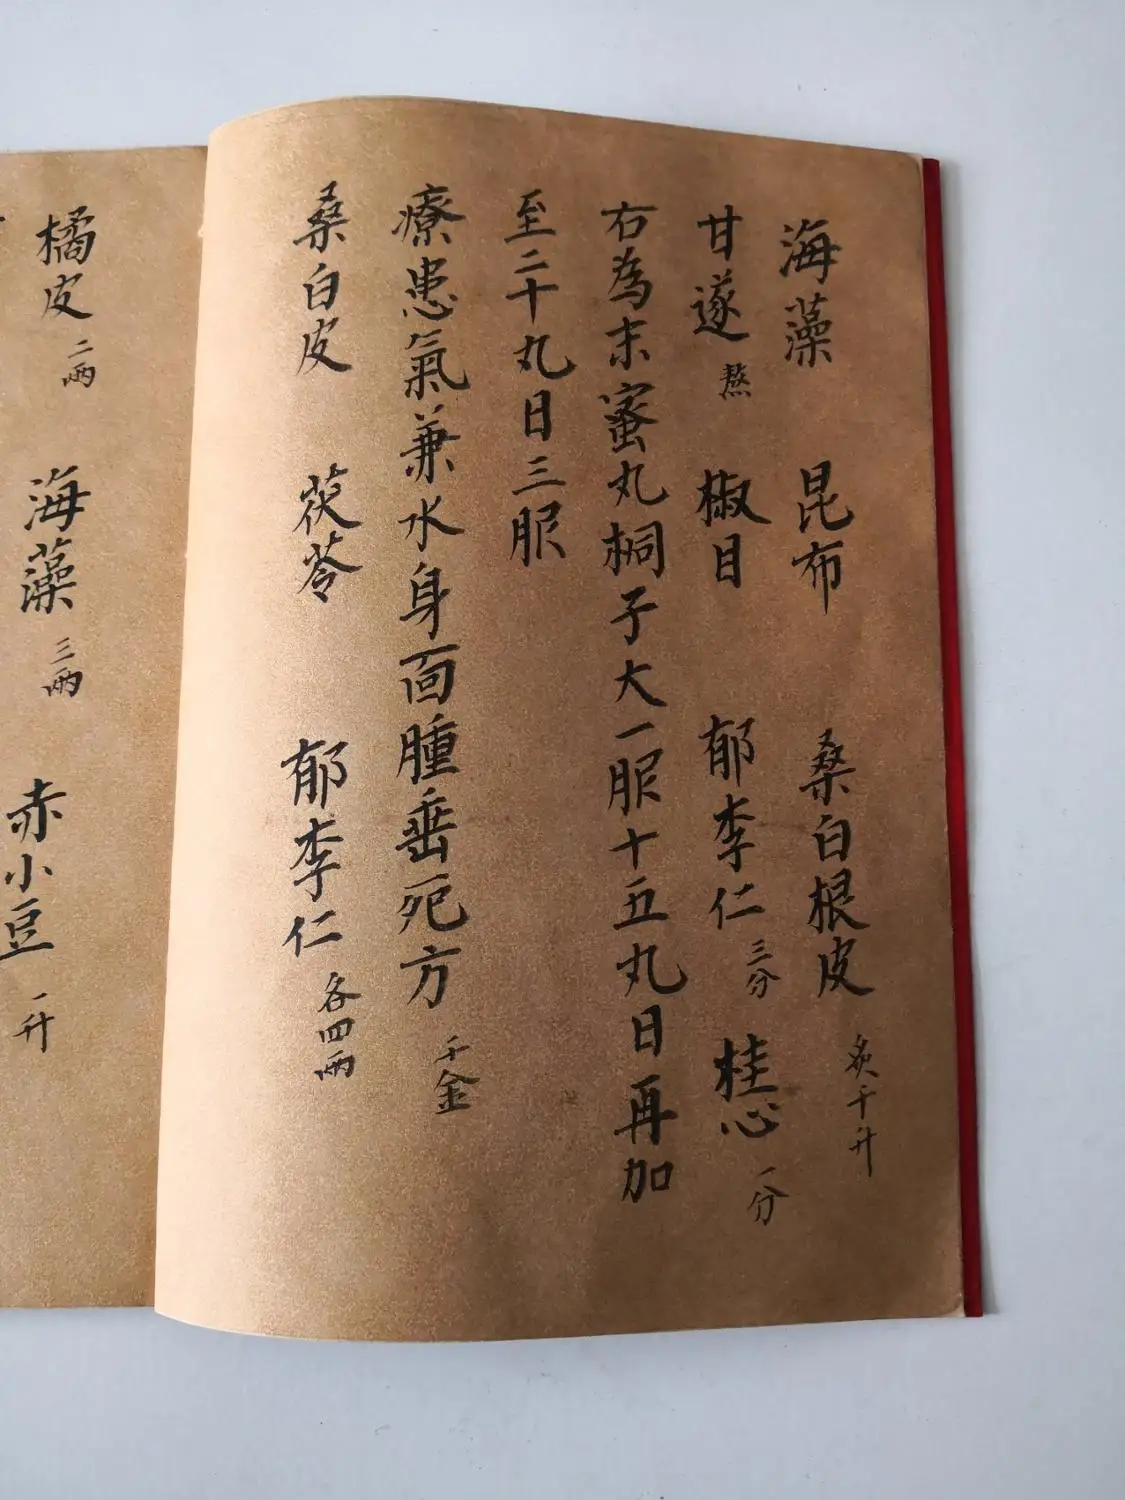 海藻 昆布 桑白根皮 炙千升
甘遂 熬 椒目 郁李仁 三分 桂心 一分
右為末蜜丸桐子大一服十五丸日再加
至二十丸日三服
療患氣兼水身面腫垂死方 千金
桑白皮 茯苓 郁李仁 各四兩
橘皮 二兩 海藻 三兩 赤小豆 一升